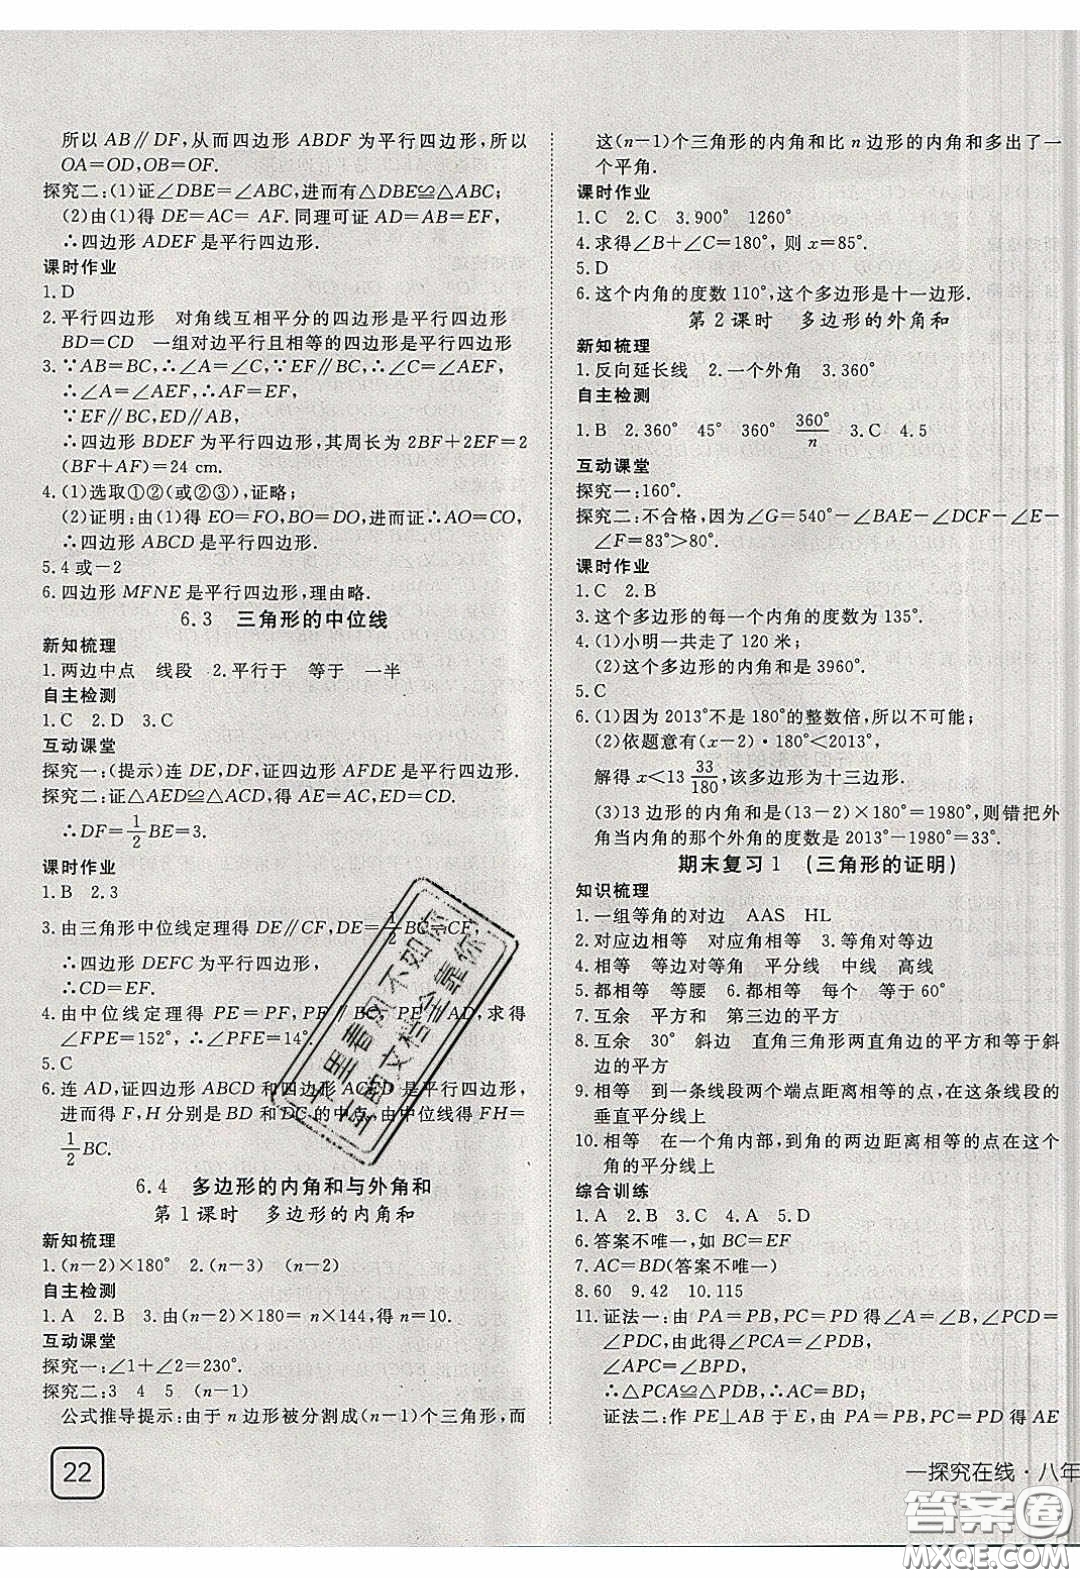 所以 AB∥DF,从而四边形 ABDF 为平行四边形,所以
OA=OD,OB=OF.
探究二:(1)证∠DBE=∠ABC,进而有△DBE≌△ABC;
(2)由(1)得 DE=AC= AF.同理可证 AD=AB=EF,
∴四边形 ADEF 是平行四边形.
课时作业
1.D
2.平行四边形 对角线互相平分的四边形是平行四边形
BD=CD 一组对边平行且相等的四边形是平行四边形
3.∵AB=BC,∴∠A=∠C,∵EF∥BC,∴∠C=∠AEF,
∴∠A=∠AEF,∴AF=EF.
∵EF∥BC,ED∥AB,
∴四边形 BDEF 为平行四边形,其周长为 2BF+2EF=2
(BF+AF)=24 cm.
4.(1)选取①②(或②③),证略;
(2)证明:由(1)得 EO=FO,BO=DO,进而证∴AO=CO,
∴四边形 ABCD 是平行四边形.
5.4 或-2
6.四边形 MFNE 是平行四边形,理由略.
6.3 三角形的中位线
新知梳理
1.两边中点 线段 2.平行于 等于 一半
自主检测
1.C 2.D 3.C
互动课堂
探究一:(提示)连 DE,DF,证四边形 AFDE 是平行四边形.
探究二:证△AED≌△ACD,得 AE=AC,ED=CD.
∴DF=1/2BE=3.
课时作业
1.B 2.3
3.由三角形中位线定理得 DE∥CF,DE=1/2BC=CF,
∴四边形 DEFC 为平行四边形.
∴CD=EF.
4.由中位线定理得 PE=PF,PF∥BC,PE∥AD,求得
∠FPE=152°,∴∠PFE=14°.
5.C
6.连 AD,证四边形 ABCD 和四边形 ACED 是平行四边形,
进而得 F,H 分别是 BD 和 DC 的中点,由中位线得 FH=
1/2BC.
6.4 多边形的内角和与外角和
第 1 课时 多边形的内角和
新知梳理
1.(n-2)×180° 2.(n-3) (n-2)
自主检测
1.A 2.B 3.由(n-2)×180=n×144,得 n=10.
互动课堂
探究一:∠1+∠2=230°.
探究二:3 4 5 (n-1)
公式推导提示:由于 n 边形被分割成(n-1)个三角形,而
22
这(n-1)个三角形的内角和比 n 边形的内角和多出了一
个平角.
课时作业
1.C 2.C 3.900° 1260°
4.求得∠B+∠C=180°,则 x=85°.
5.D
6.这个内角的度数 110°,这个多边形是十一边形.
第 2 课时 多边形的外角和
新知梳理
1.反向延长线 2.一个外角 3.360°
自主检测
1.B 2.360° 45° 360° 360°/n 3.C 4.5
互动课堂
探究一:160°.
探究二:不合格,因为∠G=540°-∠BAE-∠DCF-∠E-
∠F=83°>80°.
课时作业
1.C 2.B
3.这个多边形的每一个内角的度数为 135°.
4.(1)小明一共走了 120 米;
(2)这个多边形的内角和是 3960°.
5.C
6.(1)因为 2013°不是 180°的整数倍,所以不可能;
(2)依题意有(x-2)·180°<2013°,
解得 x<13 33/180,该多边形为十三边形.
(3)13 边形的内角和是(13-2)×180°=1980°,则错把外
角当内角的那个外角的度数是 2013°-1980°=33°.
期末复习 1 (三角形的证明)
知识梳理
1.一组等角的对边 AAS HL
2.对应边相等 对应角相等 3.等角对等边
4.相等 等边对等角 平分线 中线 高线
5.都相等 等腰 6.都相等 每个 等于 60°
7.互余 平方和 第三边的平方
8.互余 30° 斜边 直角三角形两直角边的平方和等于斜
边的平方
9.相等 到一条线段两个端点距离相等的点在这条线段的
垂直平分线上
10.相等 在一个角内部,到角的两边距离相等的点在这个
角的平分线上
综合训练
1.A 2.B 3.C 4.A 5.D
6.答案不唯一,如 BC=EF
7.AC=BD(答案不唯一)
8.60 9.42 10.115
11.证法一:由 PA=PB,PC=PD 得∠A=∠B,∠PCD=
∠PDC,由此得∠PCA=∠PDB,
∠APC=∠BPD,
∴△PCA≌△PDB,∴AC=BD.
证法二:作 PE⊥AB 于 E,由 PA=PB,PC=PD 得 AE
一探究在线·八年
答案圈
MXQE.COM